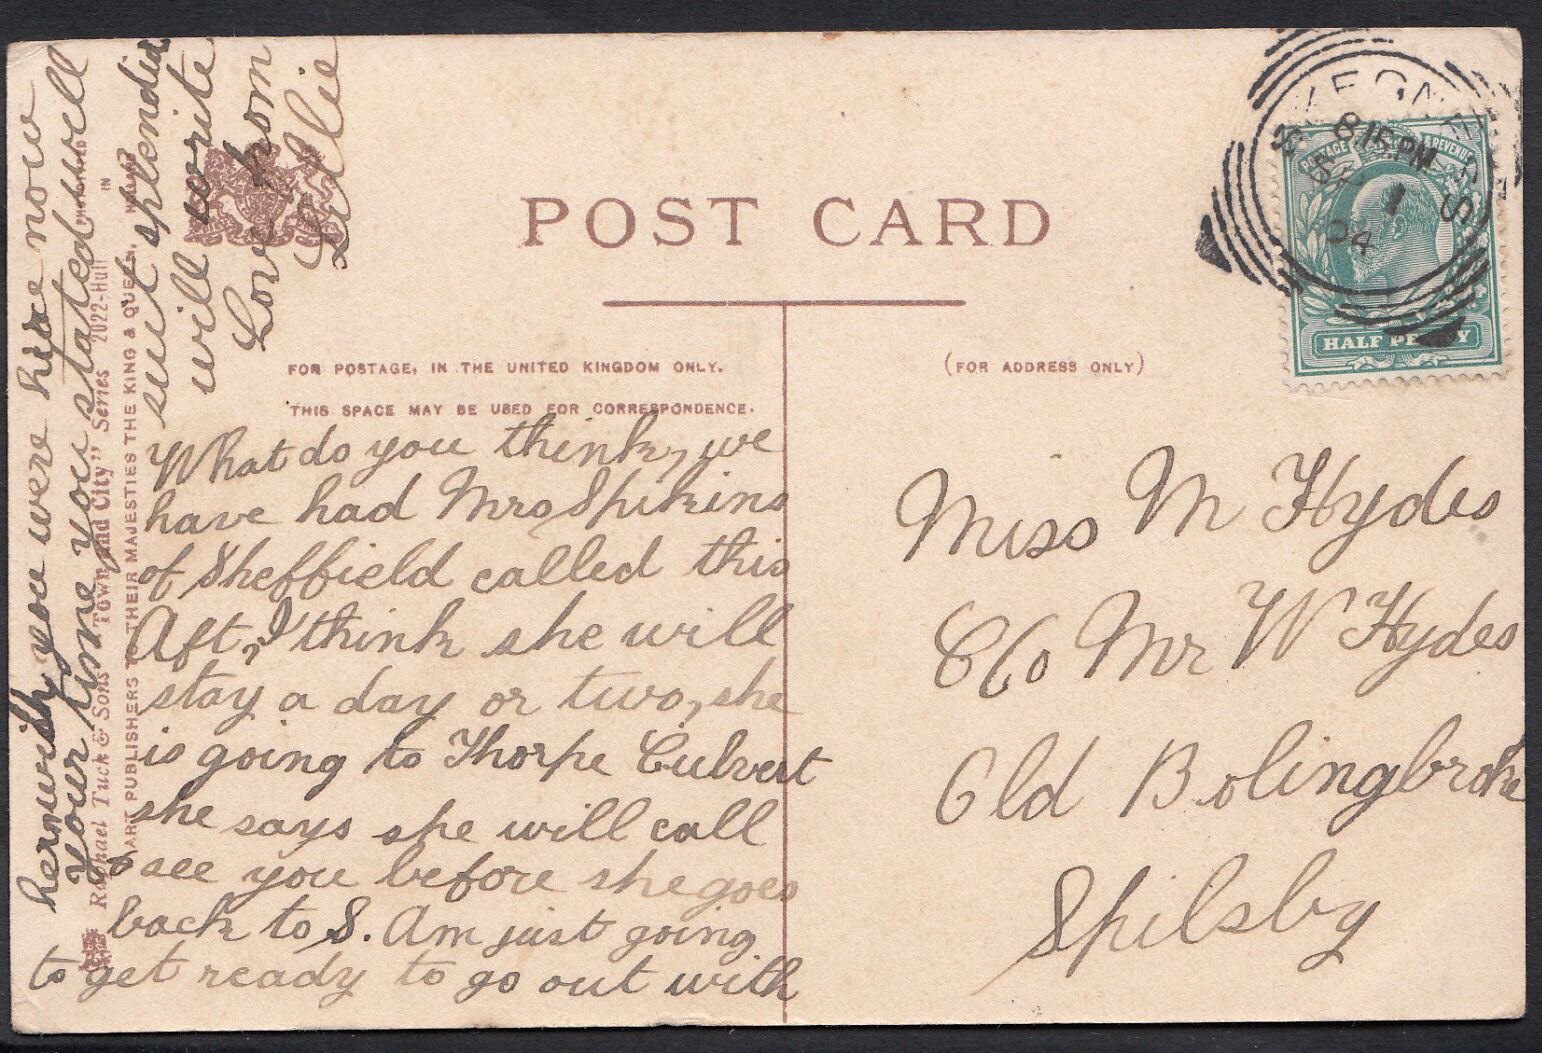 POST CARD
FOR POSTAGE, IN THE UNITED KINGDOM ONLY.
THIS SPACE MAY BE USED FOR CORRESPONDENCE.
(FOR ADDRESS ONLY)
What do you think, we
have had Mrs Spikins
of Sheffield called this
Aft, I think she will
stay a day or two, she
is going to Thorpe Culvert
she says she will call
& see you before she goes
back to S. Am just going
to get ready to go out with
her wish you were here now
Your time you stated will
suit splendid
will write
Love from
Lillie
Miss M Hydes
C/o Mr W Hydes
Old Bolingbroke
Spilsby
SKEGNESS
8.15 PM
1
04
POSTAGE & REVENUE
HALF PENNY
Raphael Tuck & Sons "Town and City" Series 2022-Hull
ART PUBLISHERS TO THEIR MAJESTIES THE KING & QUEEN.
IN